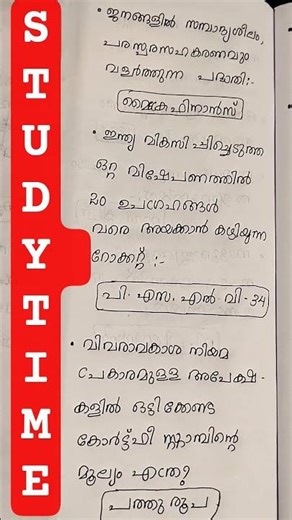 STUDY TIME
• ജനങ്ങളിൽ സമ്പാദ്യശീലം,
പരസ്പരസഹകരണവും
വളർത്തുന്ന പദ്ധതി:-
മൈക്രോഫിനാൻസ്
• ഇന്ത്യ വികസിപ്പിച്ചെടുത്ത
ഒറ്റ വിക്ഷേപണത്തിൽ
20 ഉപഗ്രഹങ്ങൾ
വരെ അയക്കാൻ കഴിയുന്ന
റോക്കറ്റ് :-
പി. എസ. എൽ വി - 34
• വിവരാവകാശ നിയമ
പ്രകാരമുള്ള അപേക്ഷ -
കളിൽ ഒട്ടിക്കേണ്ട
കോർട്ട്ഫീ സ്റ്റാമ്പിന്റെ
മൂല്യം എത്ര?
പത്തു രൂപ